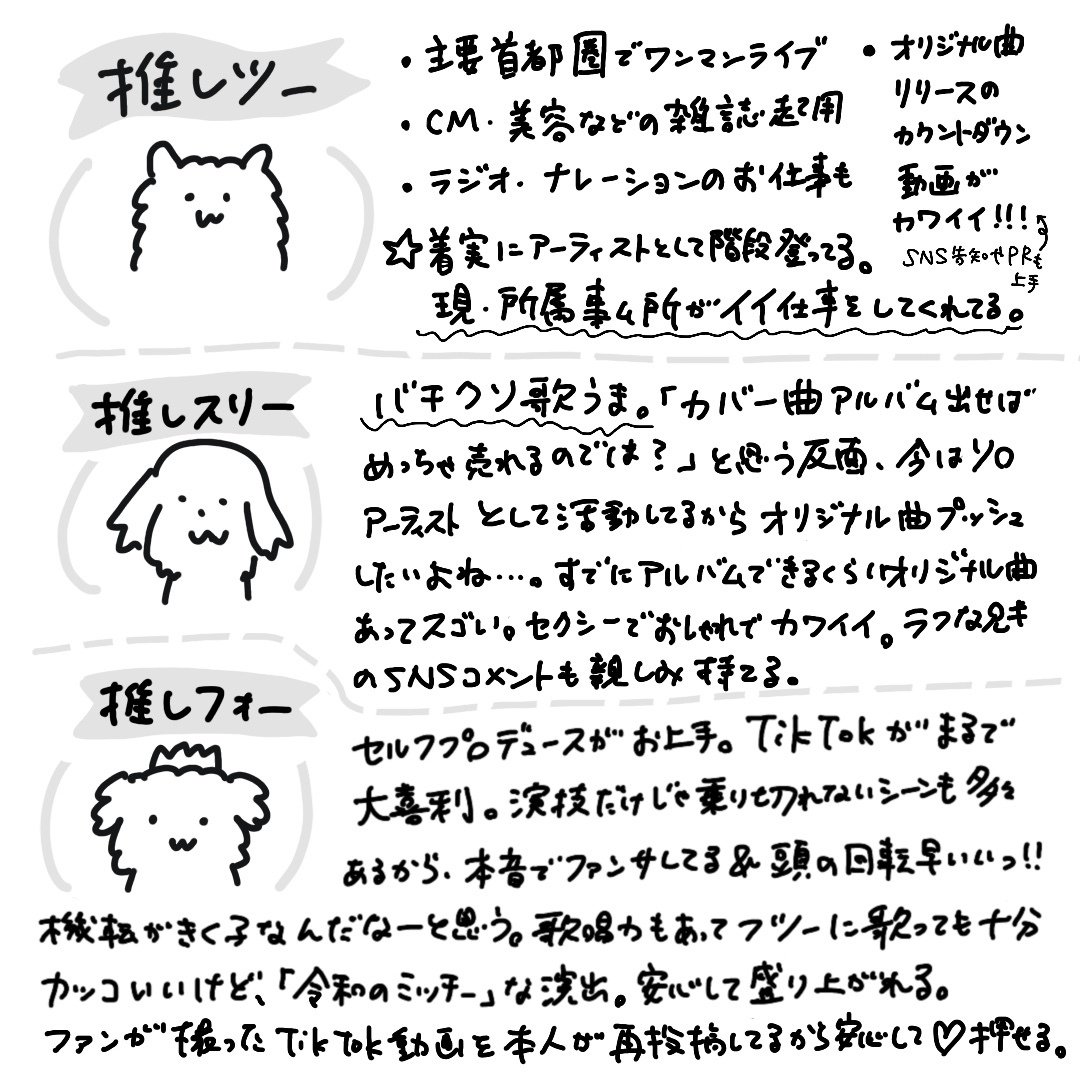 推しツー
・主要首都圏でワンマンライブ
・CM・美容などの雑誌起用
・ラジオ・ナレーションのお仕事も
☆着実にアーティストとして階段登ってる。
現・所属事ム所がイイ仕事をしてくれてる。
・オリジナル曲
リリースの
カウントダウン
動画が
カワイイ!!!
SNS告知やPRも
上手
推しスリー
バチクソ歌うま。「カバー曲アルバム出せば
めっちゃ売れるのでは?」と思う反面、今はソロ
アーティストとして活動してるからオリジナル曲プッシュ
したいよね…。すでにアルバムできるくらいオリジナル曲
あってスゴい。セクシーでおしゃれでカワイイ。ラフな兄キ
のSNSコメントも親しみ持てる。
推しフォー
セルフプロデュースがお上手。TikTokがまるで
大喜利。演技だけじゃ乗り切れないシーンも多々
あるから、本音でファンサしてる&頭の回転早いいっ!!
機転がきく子なんだなーと思う。歌唱力もあってフツーに歌っても十分
カッコいいけど、「令和のミッチー」な演出。安心して盛り上がれる。
ファンが撮ったTikTok動画を本人が再投稿してるから安心して♡押せる。